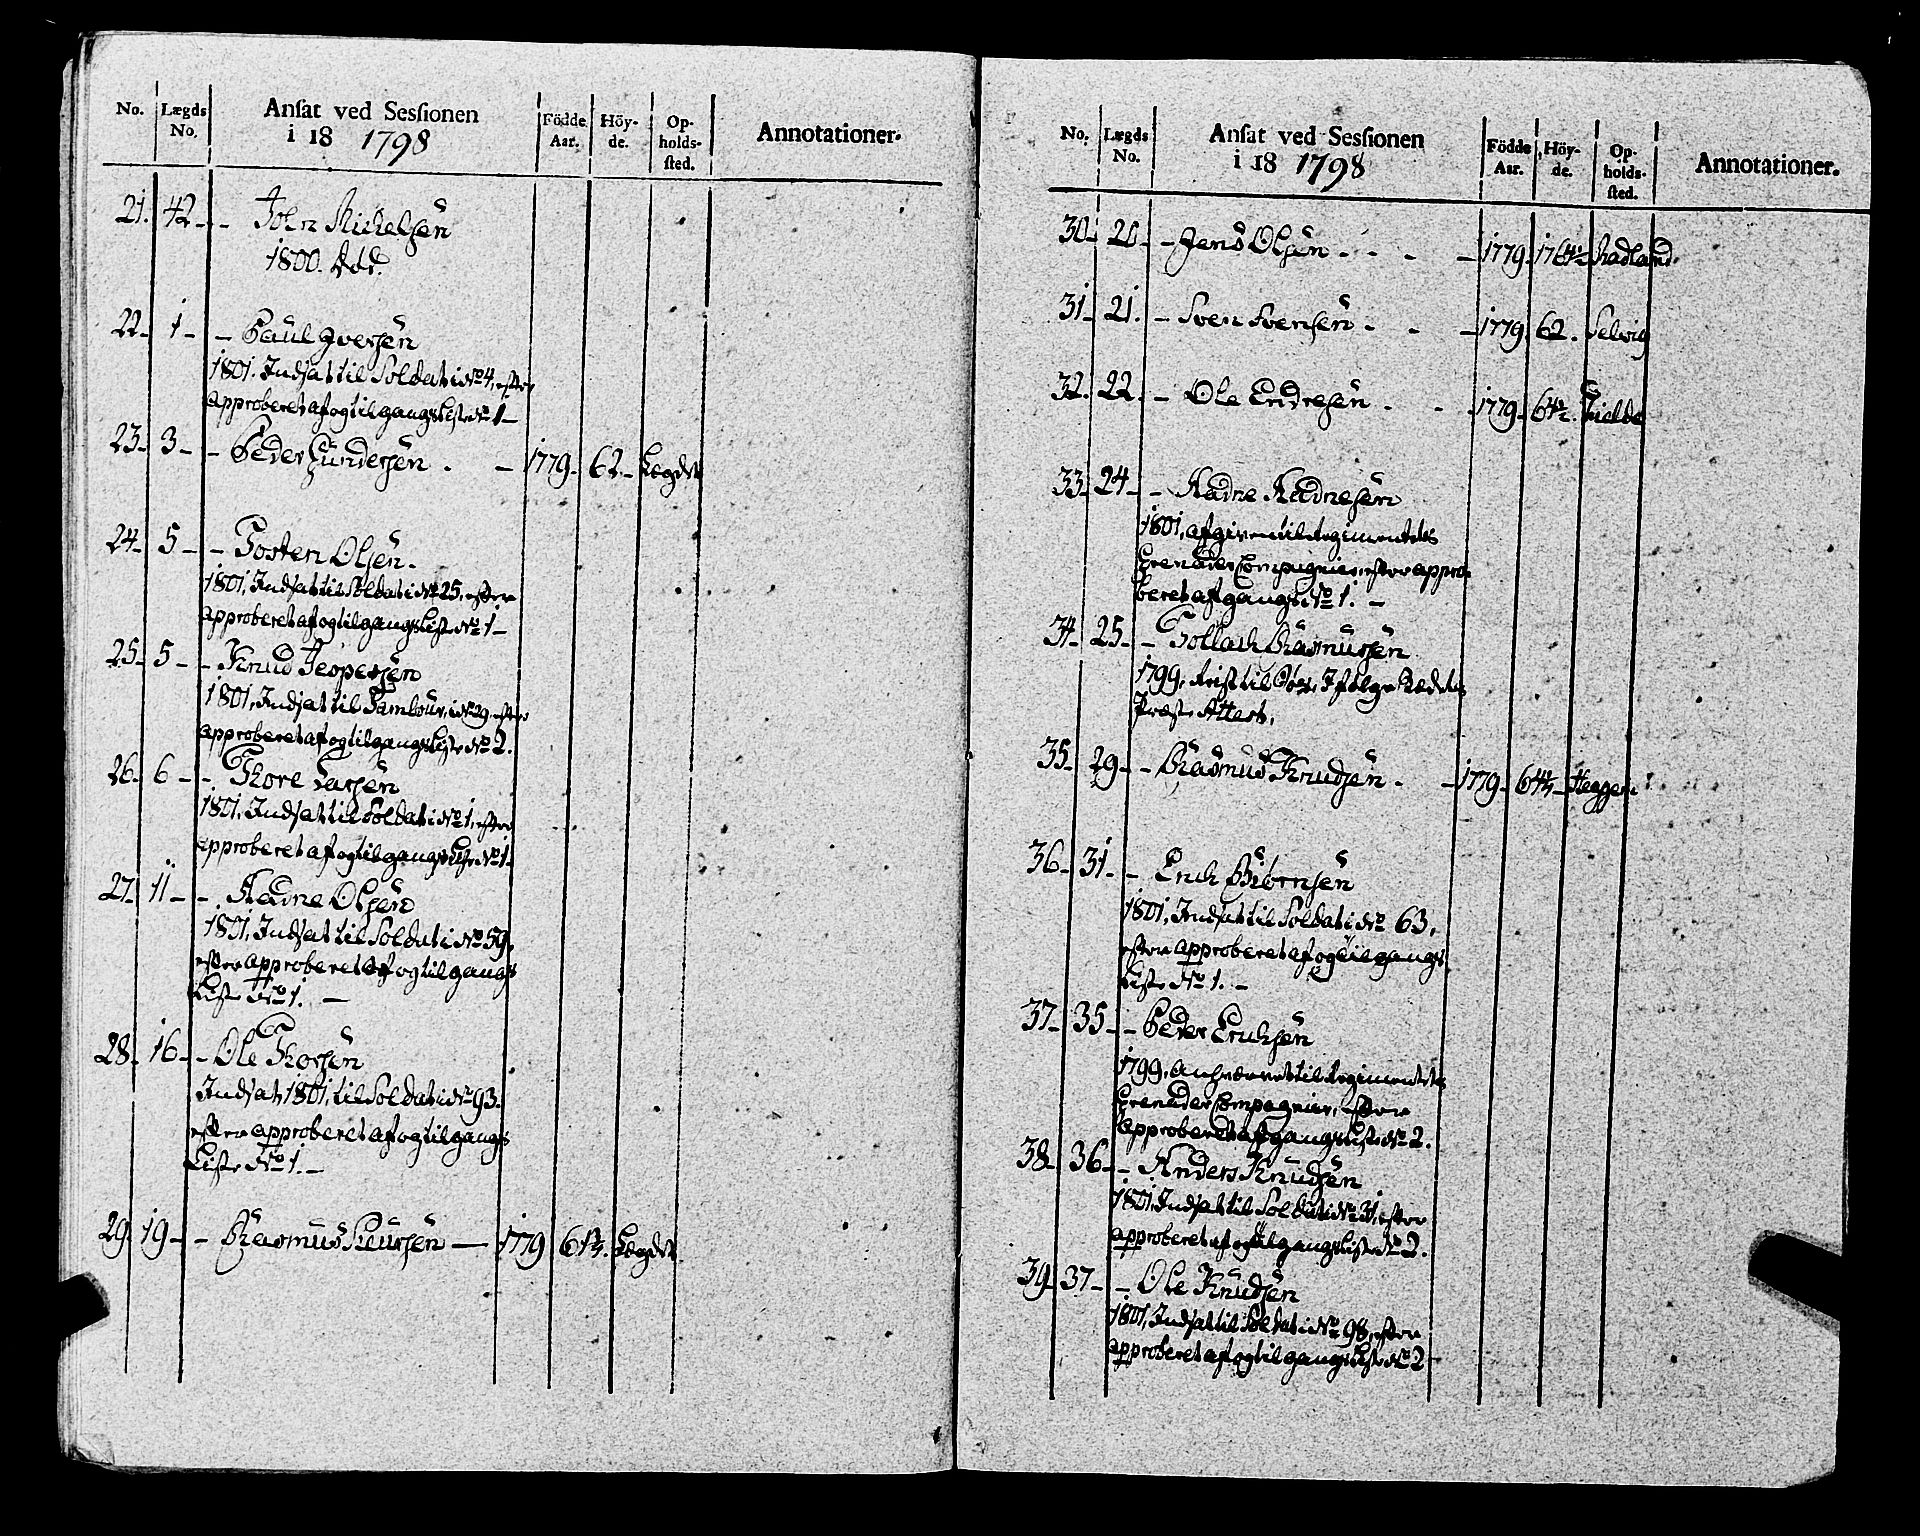 No. Lægds No. Ansat ved Sessionen i 18 1798 Födde Aar. Höy-de. Op-holds-sted. Annotationer.
21. 42 - John Michelsen
1800. Död.
22 - 1 - - Paul Iversen
1801. Indsat til Soldat i No 4, efter
approberet af og tilgangs Liste No 1 -
23 - 3 - - Peder Gundersen - 1779. 62 - Lægdet
24 - 5 - - Tosten Olsen.
1801, Indsat til Soldat i No 25, efter
approberet af og tilgangs Liste No 1 -
25 - 5 - - Knud Jespersen
1801, Indsat til Tambour, i No 29, efter
approberet af og tilgangs Liste No 2.
26 - 6 - - Thore Larsen
1801, Indsat til Soldat i No 1, efter
approberet af og tilgangs Liste No 1 -
27 - 11 - - Aadne Olsen
1801, Indsat til Soldat i No 59,
efter approberet af og tilgangs
Liste No 1. -
28 - 16 - - Ole Thorsen
Indsat 1801, til Soldat i No 93.
efter approberet af og tilgangs
Liste No 1. -
29. 19 - - Rasmus - 1779 Lægdet
No. Lægds No. Ansat ved Sessionen i 18 1798 Födde Aar. Höy-de. Op-holds-sted. Annotationer.
30 - 20 - - Jens Olsen - - - 1779.
31 - 21. - Sven Svensen - - - 1779. 62. Selvig
32 - 22 - - Ole Endresen - - 1779 -
33 - 24 - - Aadne Aadnesen
1801, afgiven til Regimentets
Grenader Compagnier, efter appro-
beret afgangs No 1. -
34 - 25 - - Tollack Rasmusen
1799, Reist til Søes, Ifølge Stedets
Præsts Attest,
35 - 29 - - Rasmus Knudsen - 1779 -
36 - 31 - - Erich Biørnsen
1801, Indsat til Soldat i No 63,
efter approberet af og tilgangs
Liste No 1. -
37 - 35 - - Peder Erichsen
1799, til Regimentets
Grenader Compagnier, efter
approberet afgangs Liste No 2.
38 - 36 - - Anders Knudsen
1801, Indsat til Soldat i No 31, efter
approberet af og tilgangs Liste No 2.
39 - 37 - - Ole Knudsen
1801, Indsat til Soldat i No 98, efter
approberet af og tilgangs Liste No 2 -